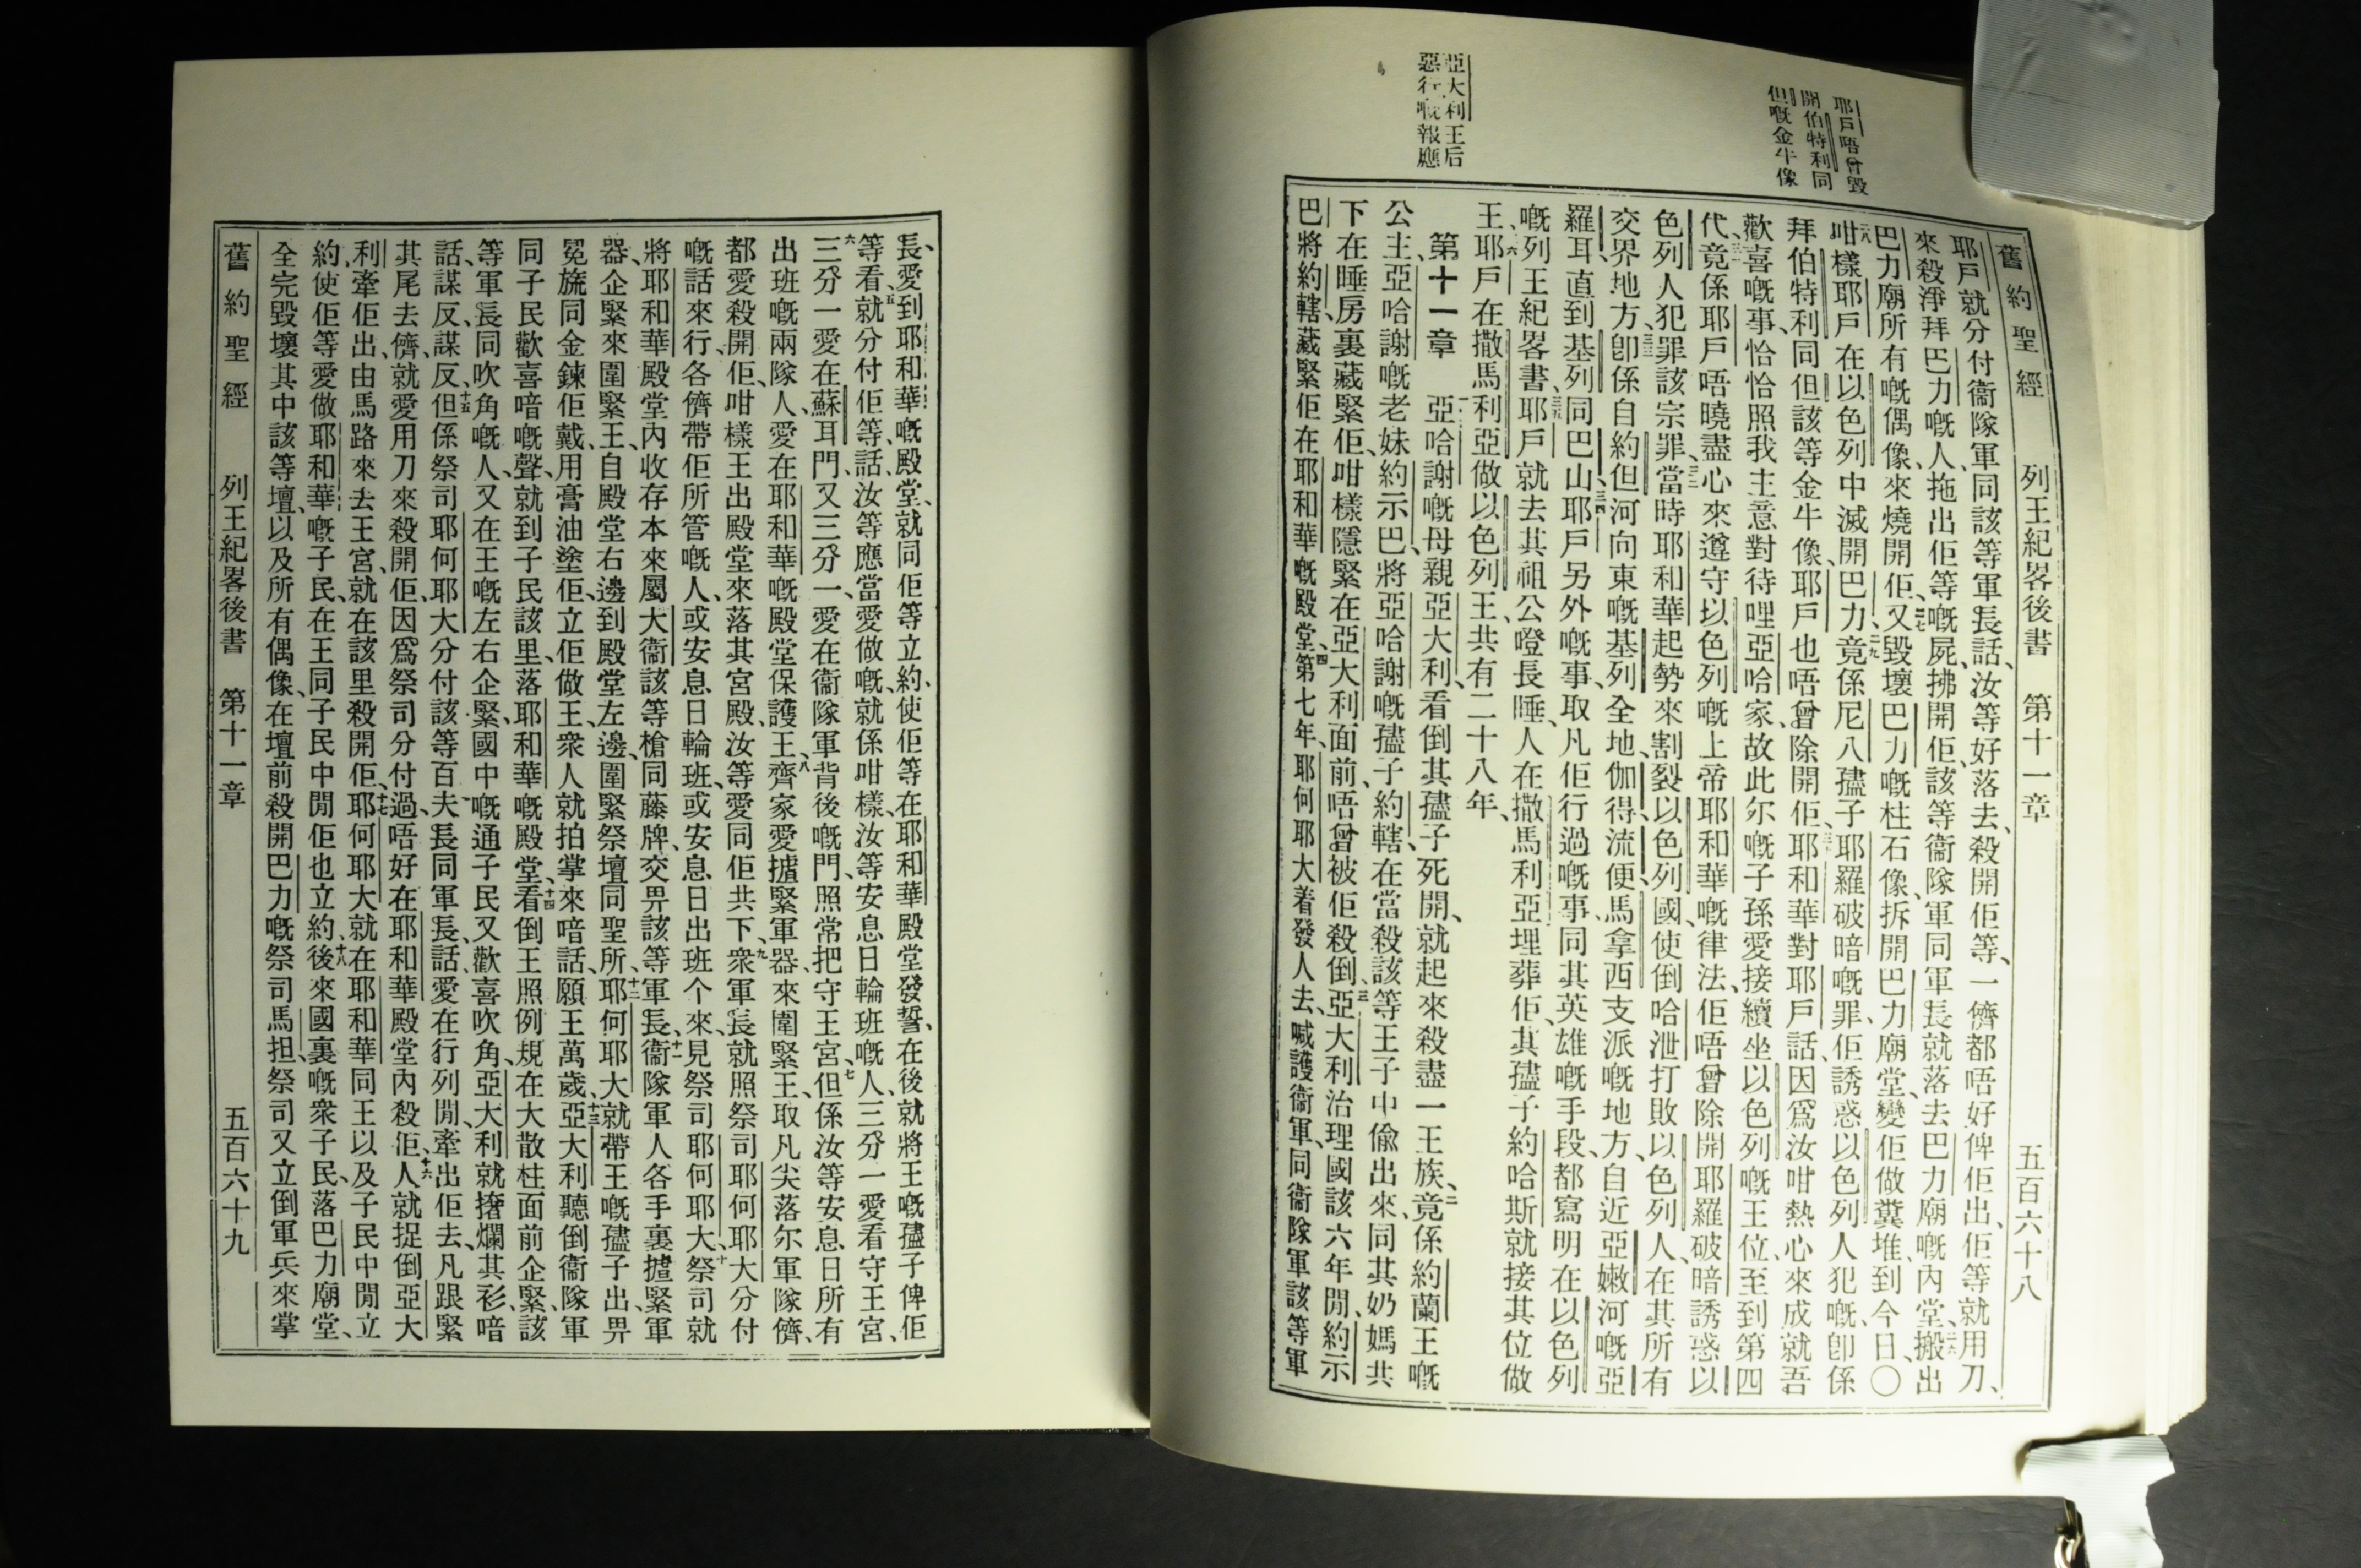 耶戶唔曾毀
開伯特利同
但嘅金牛像
亞大利王后
惡行嘅報應
舊約聖經 列王紀畧後書 第十一章 五百六十八
耶戶就分付衞隊軍同該等軍長話、汝等好落去、殺開佢等、一儕都唔好俾佢出、佢等就用刀、
來殺淨拜巴力嘅人、拖出佢等嘅屍、拂開佢、該等衞隊軍同軍長就落去巴力廟嘅內堂、二六搬出
巴力廟所有嘅偶像、來燒開佢、二七又毀壞巴力嘅柱石像、拆開巴力廟堂、變佢做糞堆、到今日、〇
二八咁樣耶戶在以色列中滅開巴力、二九竟係尼八孻子耶羅破暗嘅罪、佢誘惑以色列人犯嘅、卽係
拜伯特利同但該等金牛像、耶戶也唔曾除開佢、三十耶和華對耶戶話、因爲汝咁熱心來成就吾
歡喜嘅事、恰恰照我主意對待哩亞哈家、故此尔嘅子孫愛接續坐以色列嘅王位、至到第四
代、三一竟係耶戶唔曉盡心來遵守以色列嘅上帝耶和華嘅律法、佢唔曾除開耶羅破暗誘惑以
色列人犯罪該宗罪、三二當時耶和華起勢來割裂以色列國、使倒哈泄打敗以色列人、在其所有
交界地方、三三卽係自約但河向東嘅基列全地、伽得、流便、馬拿西支派嘅地方、自近亞嫩河嘅亞
羅耳直到基列同巴山、三四耶戶另外嘅事、取凡佢行過嘅事、同其英雄嘅手段、都寫明在以色列
嘅列王紀畧書、三五耶戶就去其祖公噔長睡、人在撒馬利亞埋葬佢、其孻子約哈斯就接其位做
王、三六耶戶在撒馬利亞做以色列王、共有二十八年、
第十一章 一亞哈謝嘅母親亞大利、看倒其孻子死開、就起來殺盡一王族、二竟係約蘭王嘅
公主、亞哈謝嘅老妹約示巴、將亞哈謝嘅孻子約轄、在當殺該等王子中偸出來、同其奶媽共
下在睡房裏藏緊佢、咁樣隱緊在亞大利面前、唔曾被佢殺倒、三亞大利治理國該六年閒、約示
巴將約轄、藏緊佢在耶和華嘅殿堂、四第七年、耶何耶大着發人去、喊護衞軍、同衞隊軍該等軍
長、愛到耶和華嘅殿堂、就同佢等立約、使佢等在耶和華殿堂發誓、在後就將王嘅孻子俾佢
等看、五就分付佢等、話、汝等應當愛做嘅、就係咁樣、汝等安息日輪班嘅人、三分一愛看守王宮、
六三分一愛在蘇耳門、又三分一愛在衞隊軍背後嘅門、照常把守王宮、七但係汝等安息日所有
出班嘅兩隊人、愛在耶和華嘅殿堂保護王、八齊家愛㨿緊軍器、來圍緊王、取凡尖落尔軍隊儕、
都愛殺開佢、咁樣王出殿堂來落其宮殿、汝等愛同佢共下、九衆軍長就照祭司耶何耶大分付
嘅話來行、各儕帶佢所管嘅人、或安息日輪班、或安息日出班个來、見祭司耶何耶大、十祭司就
將耶和華殿堂內收存本來屬大衞該等槍同藤牌、交畀該等軍長、十一衞隊軍人各手裏㨿緊軍
器、企緊來圍緊王、自殿堂右邊到殿堂左邊、圍緊祭壇同聖所、十二耶何耶大就帶王嘅孻子出、畀
冕旒同金鍊佢戴、用膏油塗佢、立佢做王、衆人就拍掌來喑話、願王萬歲、十三亞大利聽倒衞隊軍
同子民歡喜喑嘅聲、就到子民該里、落耶和華嘅殿堂、十四看倒王照例規在大散柱面前企緊、該
等軍長同吹角嘅人、又在王嘅左右企緊、國中嘅通子民又歡喜吹角、亞大利就撦爛其衫、喑
話、謀反、謀反、十五但係祭司耶何耶大分付該等百夫長同軍長、話、愛在行列閒、牽出佢去、凡跟緊
其尾去儕、就愛用刀來殺開佢、因爲祭司分付過、唔好在耶和華殿堂內殺佢、十六人就捉倒亞大
利、牽佢出、由馬路來去王宮、就在該里殺開佢、十七耶何耶大就在耶和華同王以及子民中閒立
約、使佢等愛做耶和華嘅子民、在王同子民中閒佢也立約、十八後來國裏嘅衆子民、落巴力廟堂、
全完毀壞其中該等壇、以及所有偶像、在壇前殺開巴力嘅祭司馬担、祭司又立倒軍兵來掌
舊約聖經 列王紀畧後書 第十一章 五百六十九